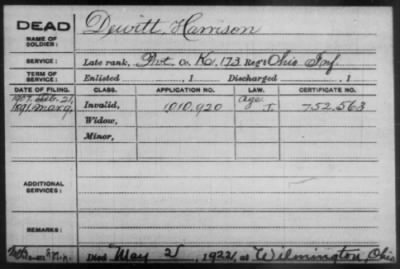 DEAD
NAME OF SOLDIER: Dewitt, Harrison
SERVICE: Late rank, Pvt. Co. K, 173 Reg't Ohio Inf.
TERM OF SERVICE: Enlisted , 1 Discharged , 1
DATE OF FILING. CLASS. APPLICATION NO. LAW. CERTIFICATE NO.
1907. Feb. 21, age
Invalid, 1,010,920 J. 752,563
Widow,
Minor,
ADDITIONAL SERVICES:
REMARKS:
Died May 2, 1922, at Wilmington, Ohio